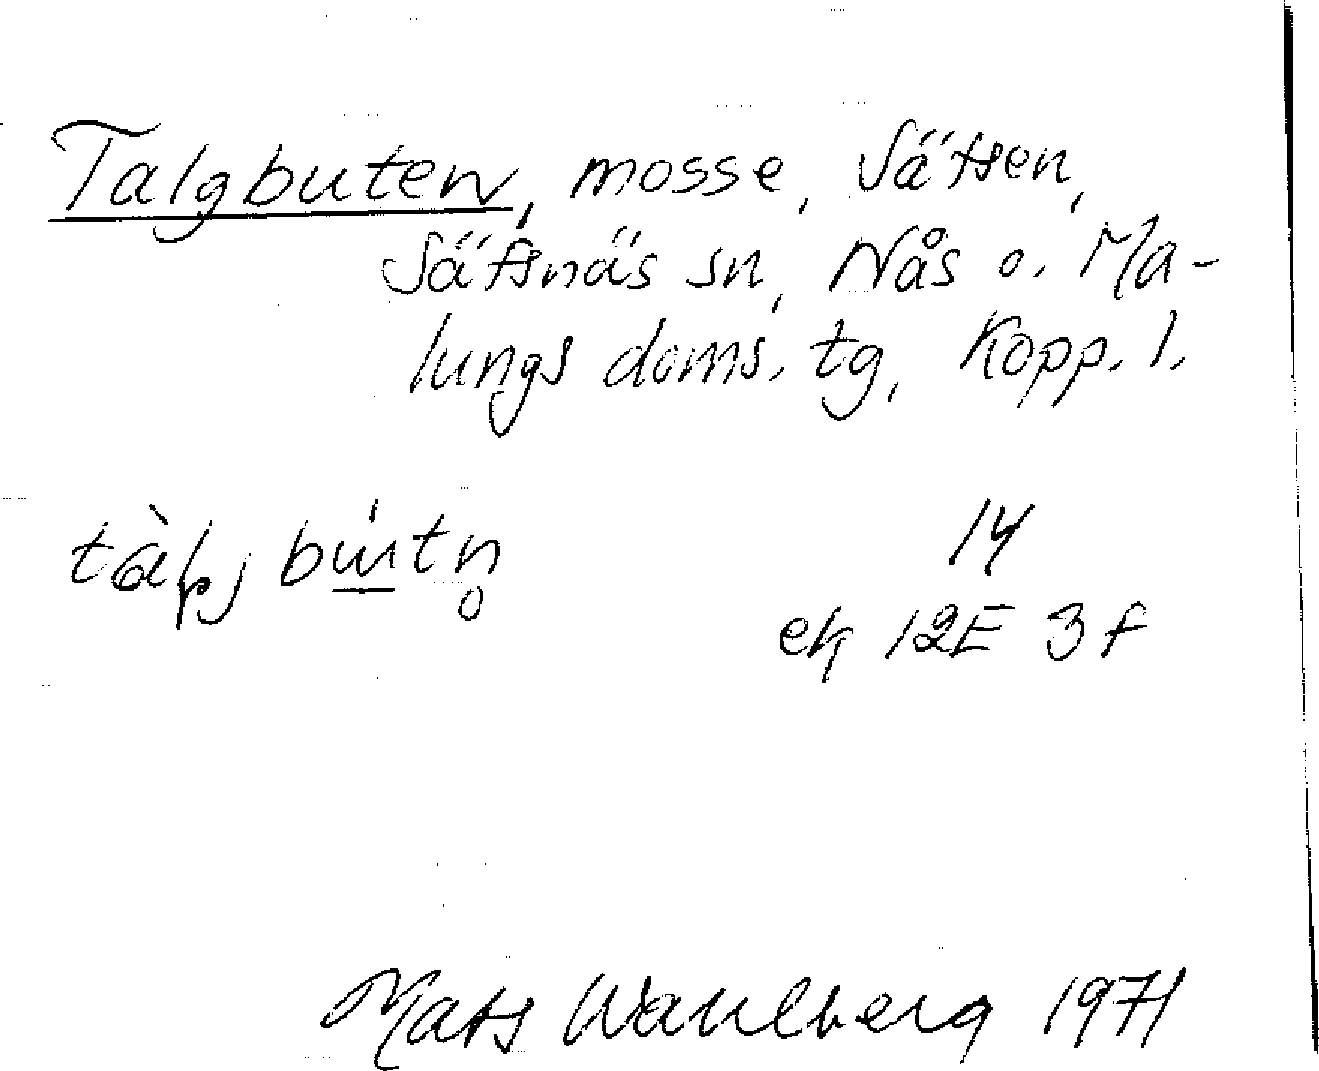 Talgbuten, mosse, Sätsen,
Sätsnäs sn, Nås o. Ma-
lungs doms. tg, Kopp. l.
14
ek 12E 3f
Mats Wahlberg 1971